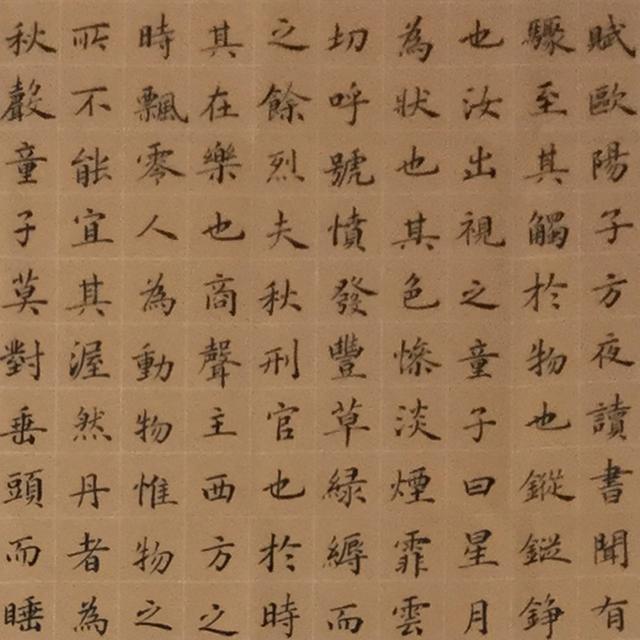 賦歐陽子方夜讀書聞有
驟至其觸於物也鏦鏦錚
也汝出視之童子曰星月
為狀也其色慘淡煙霏雲
切呼號憤發豐草緑縟而
之餘烈夫秋刑官也於時
其在樂也商聲主西方之
時飄零人為動物惟物之
所不能宜其渥然丹者為
秋聲童子莫對垂頭而睡